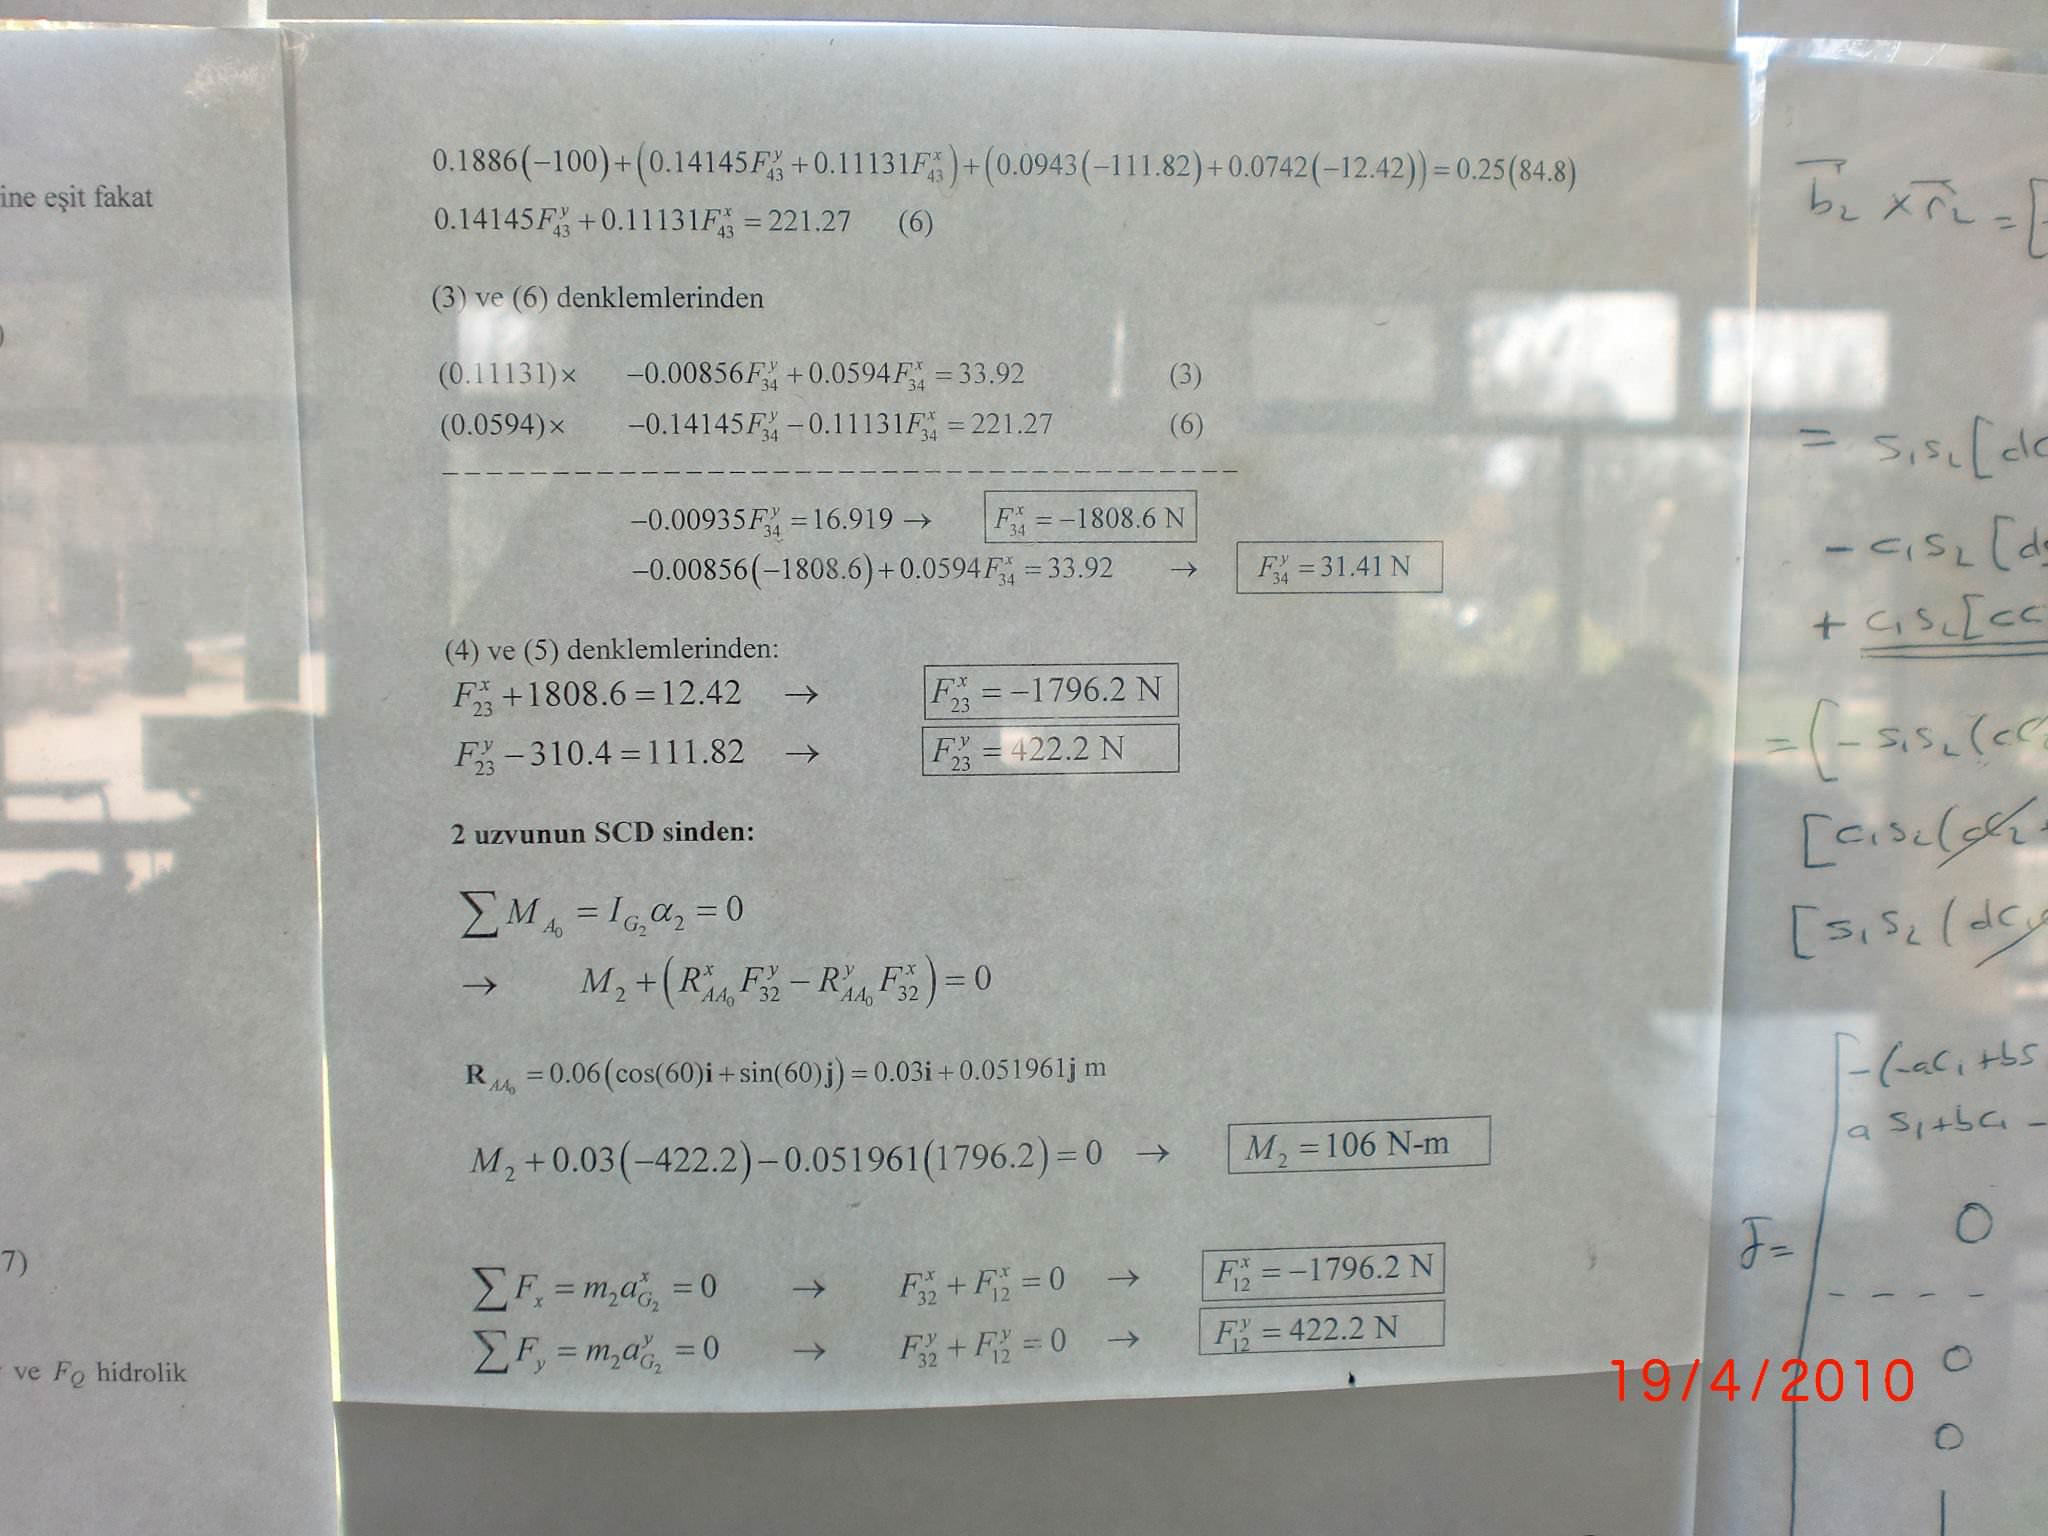 ine eşit fakat
)
7)
ve F_Q hidrolik
0.1886(−100)+(0.14145F₄₃ʸ+0.11131F₄₃ˣ)+(0.0943(−111.82)+0.0742(−12.42))=0.25(84.8)
0.14145F₄₃ʸ+0.11131F₄₃ˣ=221.27 (6)
(3) ve (6) denklemlerinden
(0.11131)× −0.00856F₃₄ʸ+0.0594F₃₄ˣ=33.92 (3)
(0.0594)× −0.14145F₃₄ʸ−0.11131F₃₄ˣ=221.27 (6)
−0.00935F₃₄ʸ=16.919→ F₃₄ˣ=−1808.6 N
−0.00856(−1808.6)+0.0594F₃₄ˣ=33.92 → F₃₄ʸ=31.41 N
(4) ve (5) denklemlerinden:
F₂₃ˣ+1808.6=12.42 → F₂₃ˣ=−1796.2 N
F₂₃ʸ−310.4=111.82 → F₂₃ʸ=422.2 N
2 uzvunun SCD sinden:
∑M_A₀=I_G₂α₂=0
→ M₂+(R_AA₀ˣF₃₂ʸ−R_AA₀ʸF₃₂ˣ)=0
R_AA₀=0.06(cos(60)i+sin(60)j)=0.03i+0.051961j m
M₂+0.03(−422.2)−0.051961(1796.2)=0 → M₂=106 N-m
∑Fₓ=m₂a_G₂ˣ=0 → F₃₂ˣ+F₁₂ˣ=0 → F₁₂ˣ=−1796.2 N
∑F_y=m₂a_G₂ʸ=0 → F₃₂ʸ+F₁₂ʸ=0 → F₁₂ʸ=422.2 N
b₂×r₂=[
= s₁s₂[dc
−c₁s₂[ds
+c₁s₂[cc
=(−s₁s₂(cc₂
[c₁s₂(
[s₁s₂(dc₁
−(−ac₁+bs
as₁+bc₁−
0
J=
0
0
19/4/2010